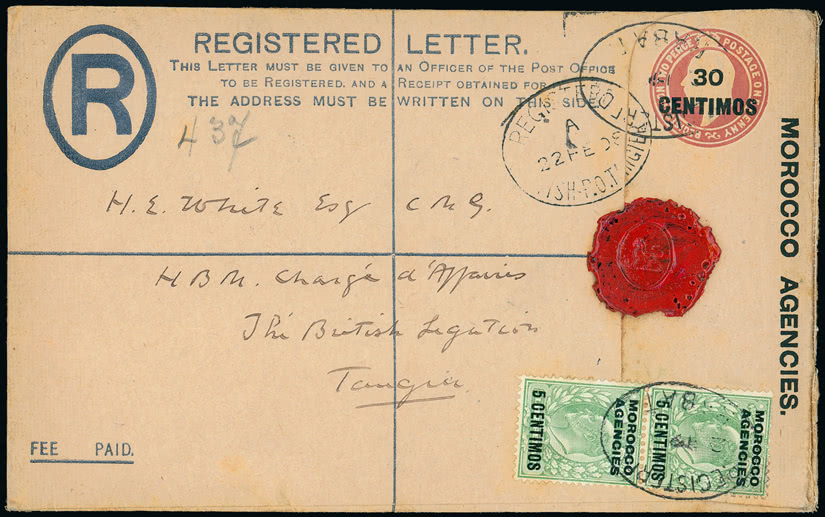 R
REGISTERED LETTER.
THIS LETTER MUST BE GIVEN TO AN OFFICER OF THE POST OFFICE
TO BE REGISTERED, AND A RECEIPT OBTAINED FOR
THE ADDRESS MUST BE WRITTEN ON THIS SIDE
437
POSTAGE ONE PENNY
30
CENTIMOS
RABAT
REGISTERED
A
22 FE 08
TANGIER
MOROCCO AGENCIES.
H. E. White Esq C M G.
H B M. Chargé d'Affaires
The British Legation
Tangier
FEE PAID.
MOROCCO
AGENCIES
5 CENTIMOS
MOROCCO
AGENCIES
5 CENTIMOS
REGISTERED